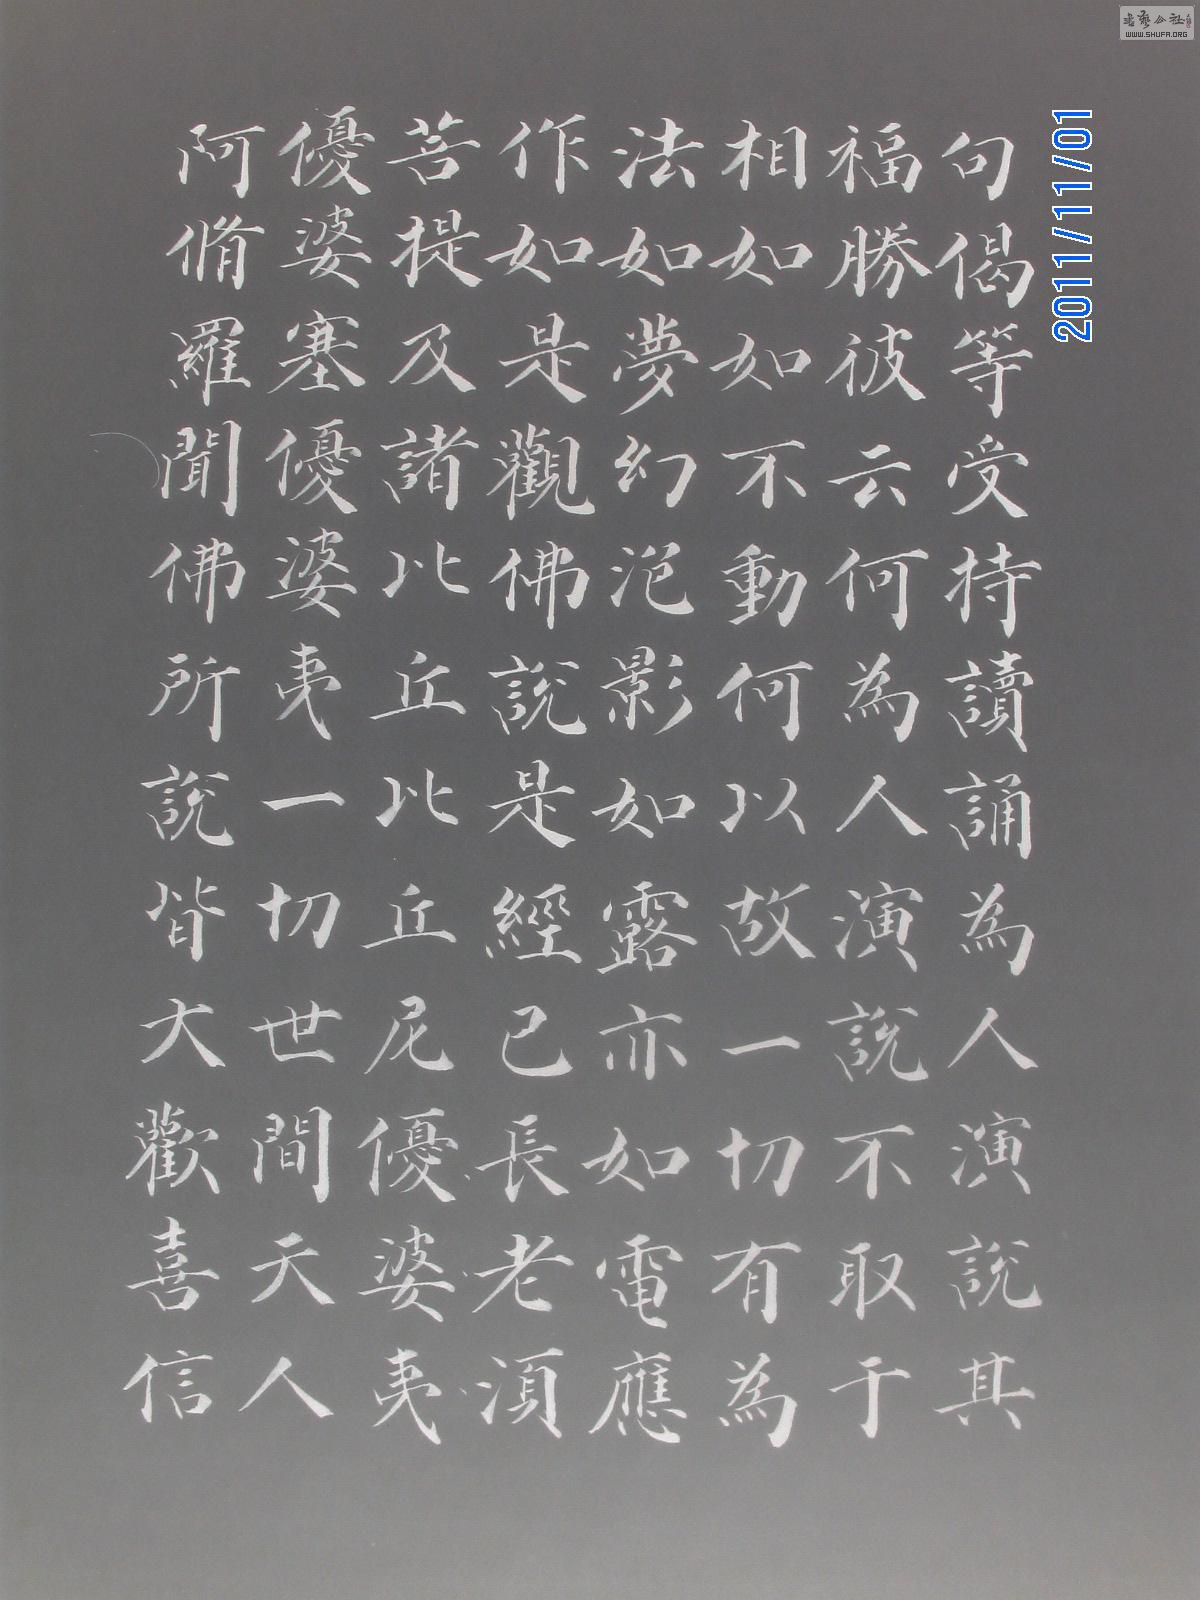 句偈等受持讀誦為人演說其
福勝彼云何為人演說不取于
相如如不動何以故一切有為
法如夢幻泡影如露亦如電應
作如是觀佛說是經已長老須
菩提及諸比丘比丘尼優婆夷
優婆塞優婆夷一切世間天人
阿脩羅聞佛所說皆大歡喜信
2011/11/01
WWW.SHUFA.ORG